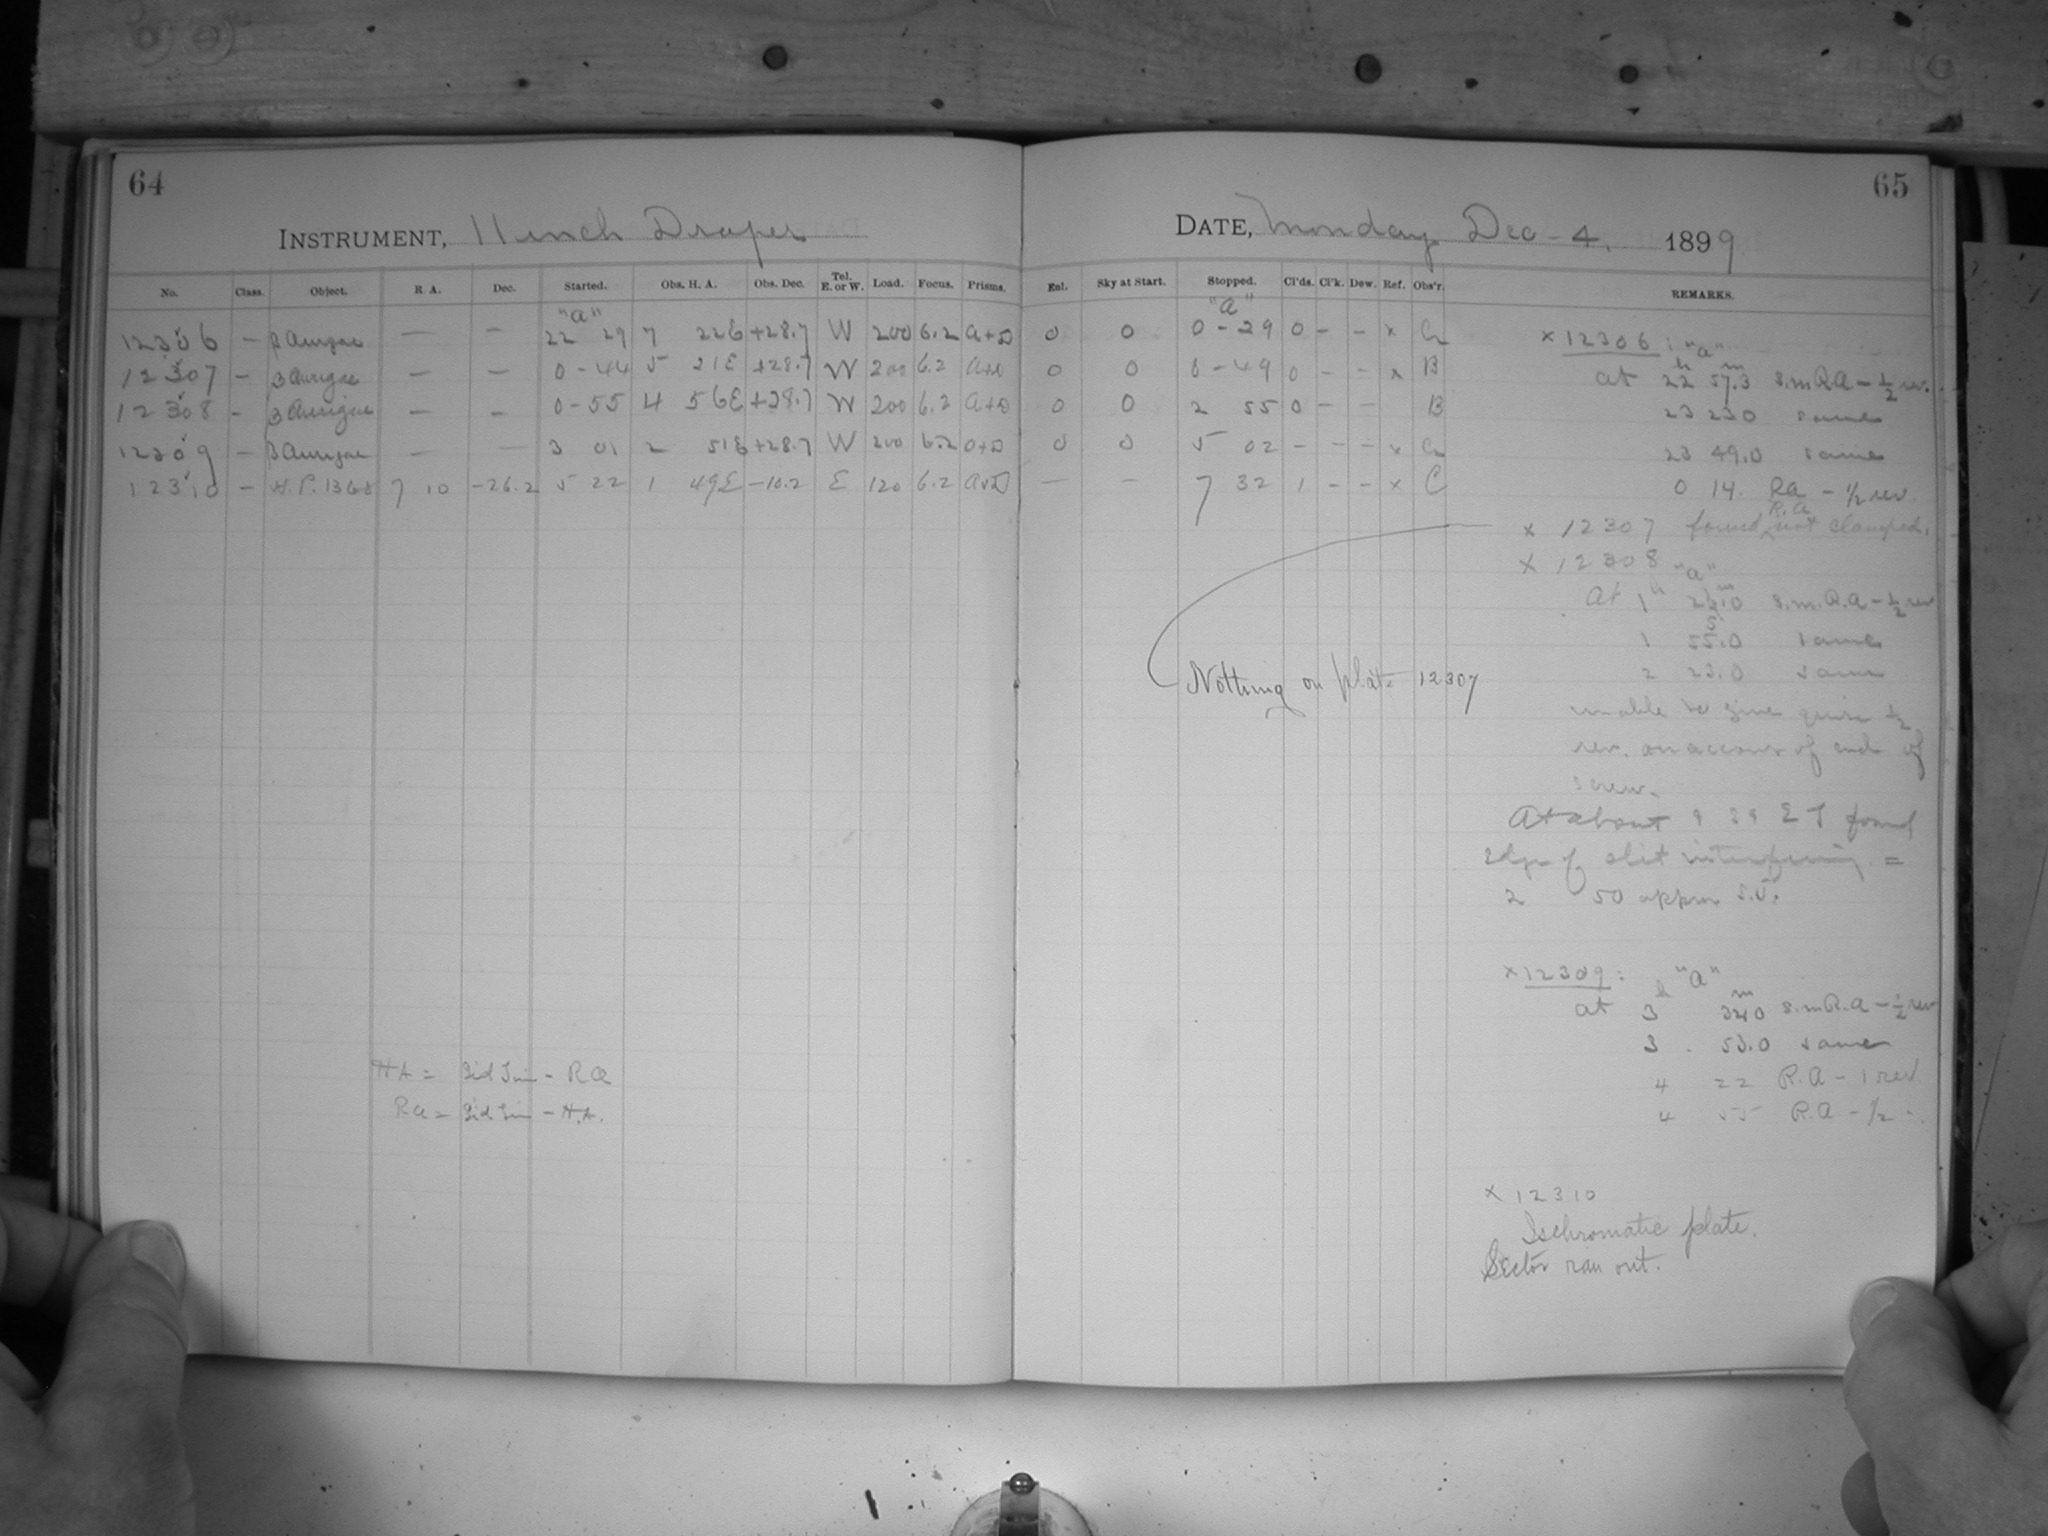 64
INSTRUMENT, 11 inch Draper
No. Class. Object. R. A. Dec. Started. Obs. H. A. Obs. Dec. Tel. E. or W. Load. Focus. Prisms.
"a"
12306 — β Aurigae — — 22 29 7 22E +28.7 W 200 6.2 a+D
12307 — β Aurigae — — 0-44 5 21E +28.7 W 200 6.2 a+D
12308 - β Aurigae — — 0-55 4 56E +28.7 W 200 6.2 a+D
12309 — β Aurigae — — 3 01 2 51E +28.7 W 200 6.2 a+D
12310 — H.P. 1368 7 10 -26.2 5 22 1 49E -10.2 E 120 6.2 a+D
HA = Sid Tim - Ra
Ra = Sid Tim - H.A.
65
DATE, Monday Dec - 4. 1899
Enl. Sky at Start. Stopped. Cl'ds. Cl'k. Dew. Ref. Obs'r. REMARKS.
"a"
0 0 0-29 0 - - x
0 0 0-49 0 - - x B
0 0 2 55 0 - - B
0 0 5 02 - - - x
— — 7 32 1 - - x C
x 12306: "a"
at 22h 57.3m s.m R.A - ½ rev.
23 23.0 same
23 49.0 same
0 14. Ra - ½ rev.
x 12307 found R.A not clamped.
Nothing on plate 12307
x 12308 "a"
At 1h m s.m. R.a - ½ rev
1 55.0 same
2 23.0 same
unable to give quite ½
rev. on account of end of
screw.
At about 9 39 E T found
edge of slit interfering =
2 50 approx S.T.
x 12309: "a"
at 3h m s.m R.a - ½ rev
3 . 53.0 same
4 22 R.A - 1 rev
4 55 R.A - ½ -.
x 12310
Ischromatic plate.
Sector ran out.